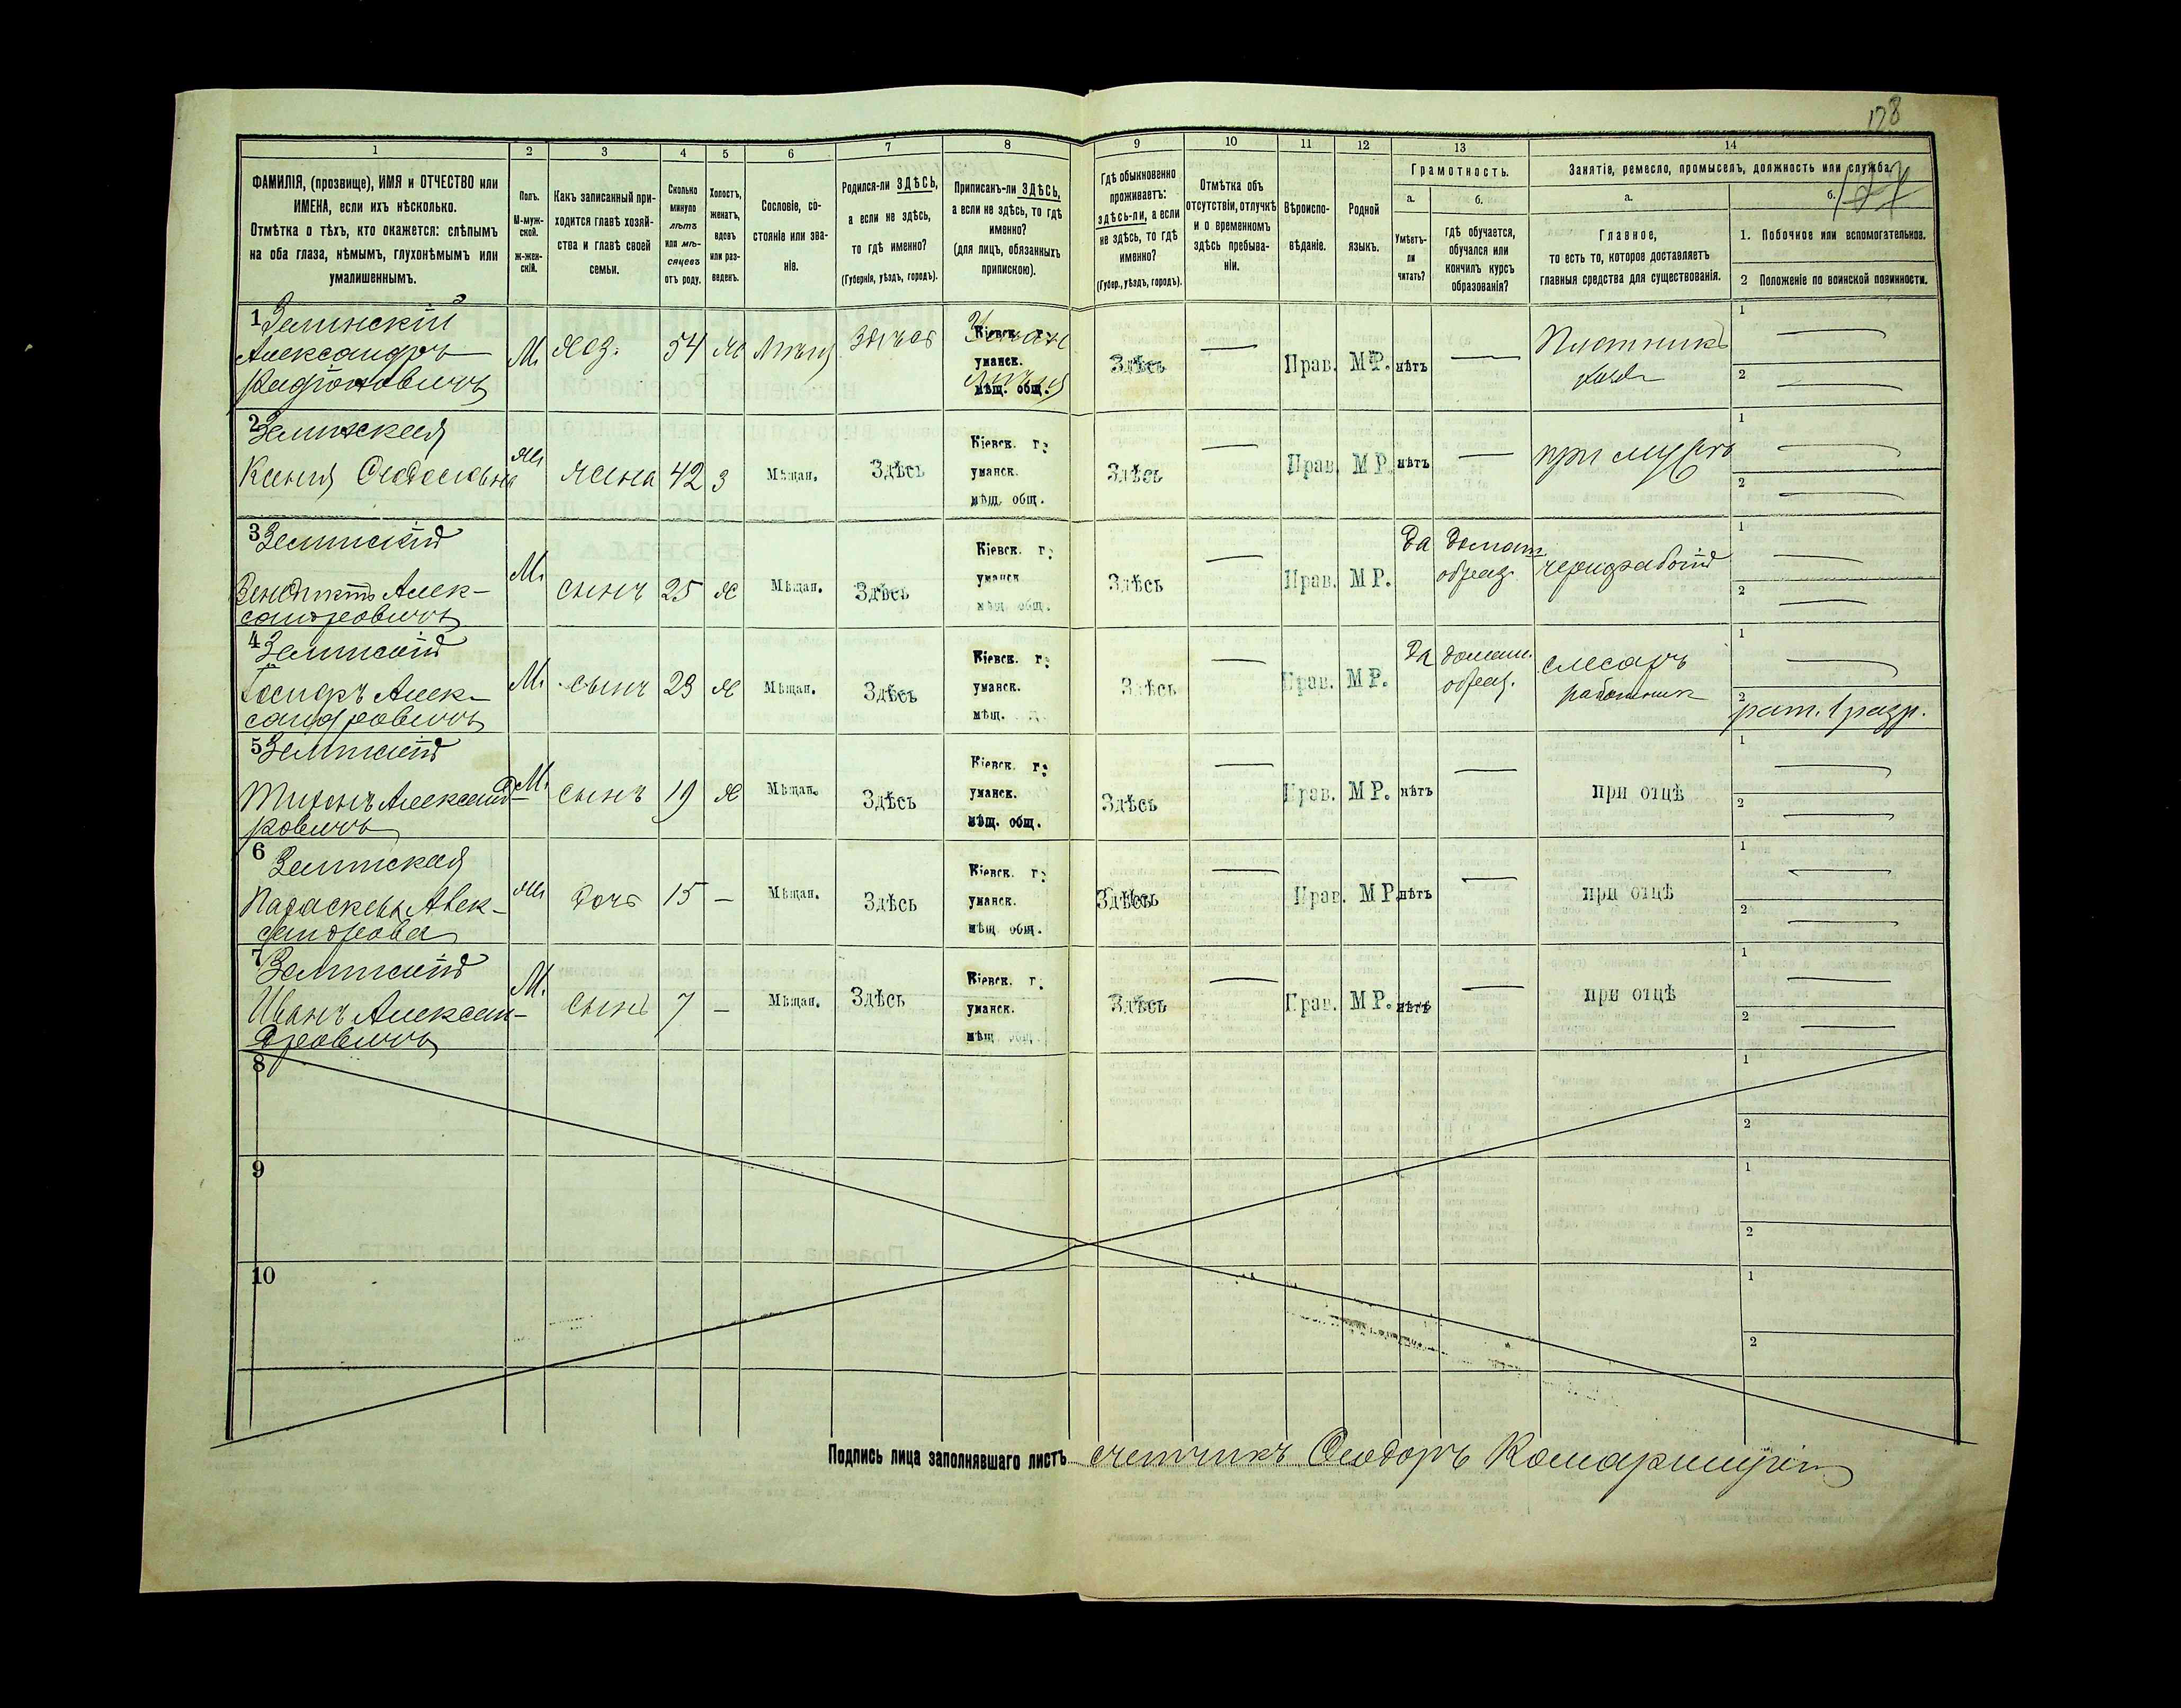 128
127
1
2
3
4
5
6
7
8
9
10
11
12
13
14
ФАМИЛІЯ, (прозвище), ИМЯ и ОТЧЕСТВО или
ИМЕНА, если ихъ нѣсколько.
Отмѣтка о тѣхъ, кто окажется: слѣпымъ
на оба глаза, нѣмымъ, глухонѣмымъ или
умалишеннымъ.
Полъ.
М-муж-
ской.
ж-жен-
скій.
Какъ записанный при-
ходится главѣ хозяй-
ства и главѣ своей
семьи.
Сколько
минуло
лѣтъ
или мѣ-
сяцевъ
отъ роду.
Холостъ,
женатъ,
вдовъ
или раз-
веденъ.
Сословіе, со-
стояніе или зва-
ніе.
Родился-ли ЗДѢСЬ,
а если не здѣсь,
то гдѣ именно?
(Губернія, уѣздъ, городъ).
Приписанъ-ли ЗДѢСЬ,
а если не здѣсь, то гдѣ
именно?
(для лицъ, обязанныхъ
припискою).
Гдѣ обыкновенно
проживаетъ:
здѣсь-ли, а если
не здѣсь, то гдѣ
именно?
(Губер., уѣздъ, городъ).
Отмѣтка объ
отсутствіи, отлучкѣ
и о временномъ
здѣсь пребыва-
ніи.
Вѣроиспо-
вѣданіе.
Родной
языкъ.
Грамотность.
а.
Умѣетъ-
ли
читать?
б.
гдѣ обучается,
обучался или
кончилъ курсъ
образованія?
Занятіе, ремесло, промыселъ, должность или служба.
а.
Главное,
то есть то, которое доставляетъ
главныя средства для существованія.
б.
1. Побочное или вспомогательное.
2 Положеніе по воинской повинности.
1 Зелинскій
Александръ
Радіоновичъ
М. Хоз. 54
Здѣсь
Кіевск. г.
уманск.
мѣщ. общ.
Здѣсь
—
Прав. М Р. нѣтъ
—
Плотникъ
1 —
2 —
2 Зелинская
Ксенія
жена 42 З Мѣщан. Здѣсь
Кіевск. г.
уманск.
мѣщ. общ.
Здѣсь
—
Прав. М Р. нѣтъ
—
при мужѣ
1 —
2 —
3 Зелинскій
Венедиктъ Алек-
сандровичъ
М. сынъ 25 Х Мѣщан. Здѣсь
Кіевск. г.
уманск.
мѣщ. общ.
Здѣсь
—
Прав. М Р. да
домаш.
образ.
чернорабочій
1 —
2 —
4 Зелинскій
Іосифъ Алек-
сандровичъ
М. сынъ 23 Х Мѣщан. Здѣсь
Кіевск. г.
уманск.
мѣщ.
Здѣсь
—
Прав. М Р. да
домаш.
образ.
слесарь
работник
1 —
2 рат. 1 разр.
5 Зелинскій
Тихонъ Александ-
ровичъ
М. сынъ 19 Х Мѣщан. Здѣсь
Кіевск. г.
уманск.
мѣщ. общ.
Здѣсь
—
Прав. М Р. нѣтъ
—
при отцѣ
1 —
2 —
6 Зелинская
Параскева Алек-
сандрова
дочь 15 — Мѣщан. Здѣсь
Кіевск. г.
уманск.
мѣщ общ.
Здѣсь
—
Прав. М Р. нѣтъ
—
при отцѣ
1 —
2 —
7 Зелинскій
Иванъ Алексан-
дровичъ
М. сынъ 7 — Мѣщан. Здѣсь
Кіевск. г.
уманск.
мѣщ общ.
Здѣсь
—
Прав. М Р. нѣтъ
—
при отцѣ
1 —
2 —
8
1
2
9
1
2
10
1
2
Подпись лица заполнявшаго листъ счетчикъ Ѳеодоръ